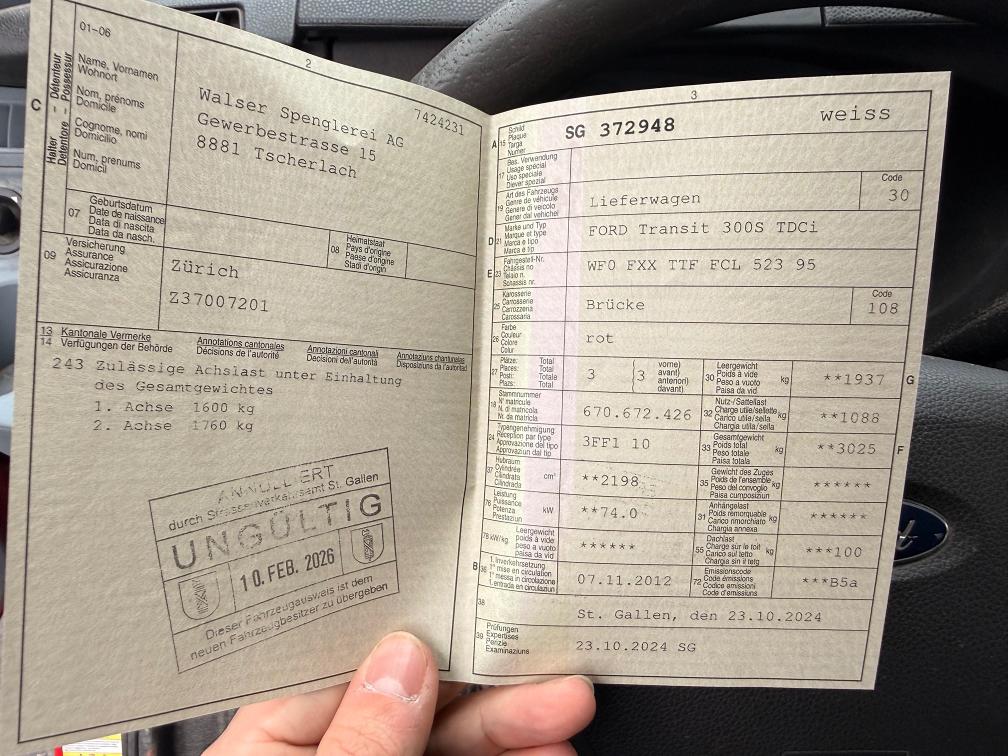 01-06
2
C
Halter - Détenteur
Detentore - Possessur
Name, Vornamen
Wohnort
Nom, prénoms
Domicile
Cognome, nomi
Domicilio
Num, prenums
Domicil
7424231
Walser Spenglerei AG
Gewerbestrasse 15
8881 Tscherlach
07
Geburtsdatum
Date de naissance
Data di nascita
Data da nasch.
08
Heimatstaat
Pays d'origine
Paese d'origine
Stadi d'origin
09
Versicherung
Assurance
Assicurazione
Assicuranza
Zürich
Z37007201
13 Kantonale Vermerke
14 Verfügungen der Behörde
Annotations cantonales
Décisions de l'autorité
Annotazioni cantonali
Decisioni dell'autorità
Annotaziuns chantunalas
Disposiziuns da l'autoritad
243 Zulässige Achslast unter Einhaltung
des Gesamtgewichtes
1. Achse 1600 kg
2. Achse 1760 kg
ANNULLIERT
durch Strassenverkehrsamt St. Gallen
UNGÜLTIG
10. FEB. 2026
Dieser Fahrzeugausweis ist dem
neuen Fahrzeugbesitzer zu übergeben
3
A 15
Schild
Plaque
Targa
Numer
SG 372948
weiss
17
Bes. Verwendung
Usage spécial
Uso speciale
Diever spezial
19
Art des Fahrzeugs
Genre de véhicule
Genere di veicolo
Gener dal vehichel
Lieferwagen
Code
30
D 21
Marke und Typ
Marque et type
Marca e tipo
Marca e tip
FORD Transit 300S TDCi
E 23
Fahrgestell-Nr.
Châssis no
Telaio n.
Schassis nr.
WF0 FXX TTF FCL 523 95
25
Karosserie
Carrosserie
Carrozzeria
Carossaria
Brücke
Code
108
26
Farbe
Couleur
Colore
Colur
rot
27
Plätze: Total
Places: Total
Posti: Totale
Plazs: Total
3
(3
vorne)
avant)
anteriori)
davant)
30
Leergewicht
Poids à vide
Peso a vuoto
Paisa da vid
kg
**1937
G
18
Stammnummer
N° matricule
N. di matricola
Nr. da matricla
670.672.426
32
Nutz-/Sattellast
Charge utile/sellette
Carico utile/sella
Chargia utila/sella
kg
**1088
24
Typengenehmigung
Réception par type
Approvazione del tipo
Approvaziun dal tip
3FF1 10
33
Gesamtgewicht
Poids total
Peso totale
Paisa totala
kg
**3025
F
37
Hubraum
Cylindrée
Cilindrata
Cilindrada
cm³
**2198
35
Gewicht des Zuges
Poids de l'ensemble
Peso del convoglio
Paisa cumposiziun
kg
******
76
Leistung
Puissance
Potenza
Prestaziun
kW
**74.0
31
Anhängelast
Poids remorquable
Carico rimorchiato
Chargia annexa
kg
******
78 kW/kg
Leergewicht
poids à vide
peso a vuoto
paisa da vid
******
55
Dachlast
Charge sur le toit
Carico sul tetto
Chargia sin il tetg
kg
***100
B 36
1. Inverkehrsetzung
1re mise en circulation
1a messa in circolazione
1. entrada en circulaziun
07.11.2012
72
Emissionscode
Code émissions
Codice emissioni
Code d'emissiuns
***B5a
38
St. Gallen, den 23.10.2024
39
Prüfungen
Expertises
Perizie
Examinaziuns
23.10.2024 SG